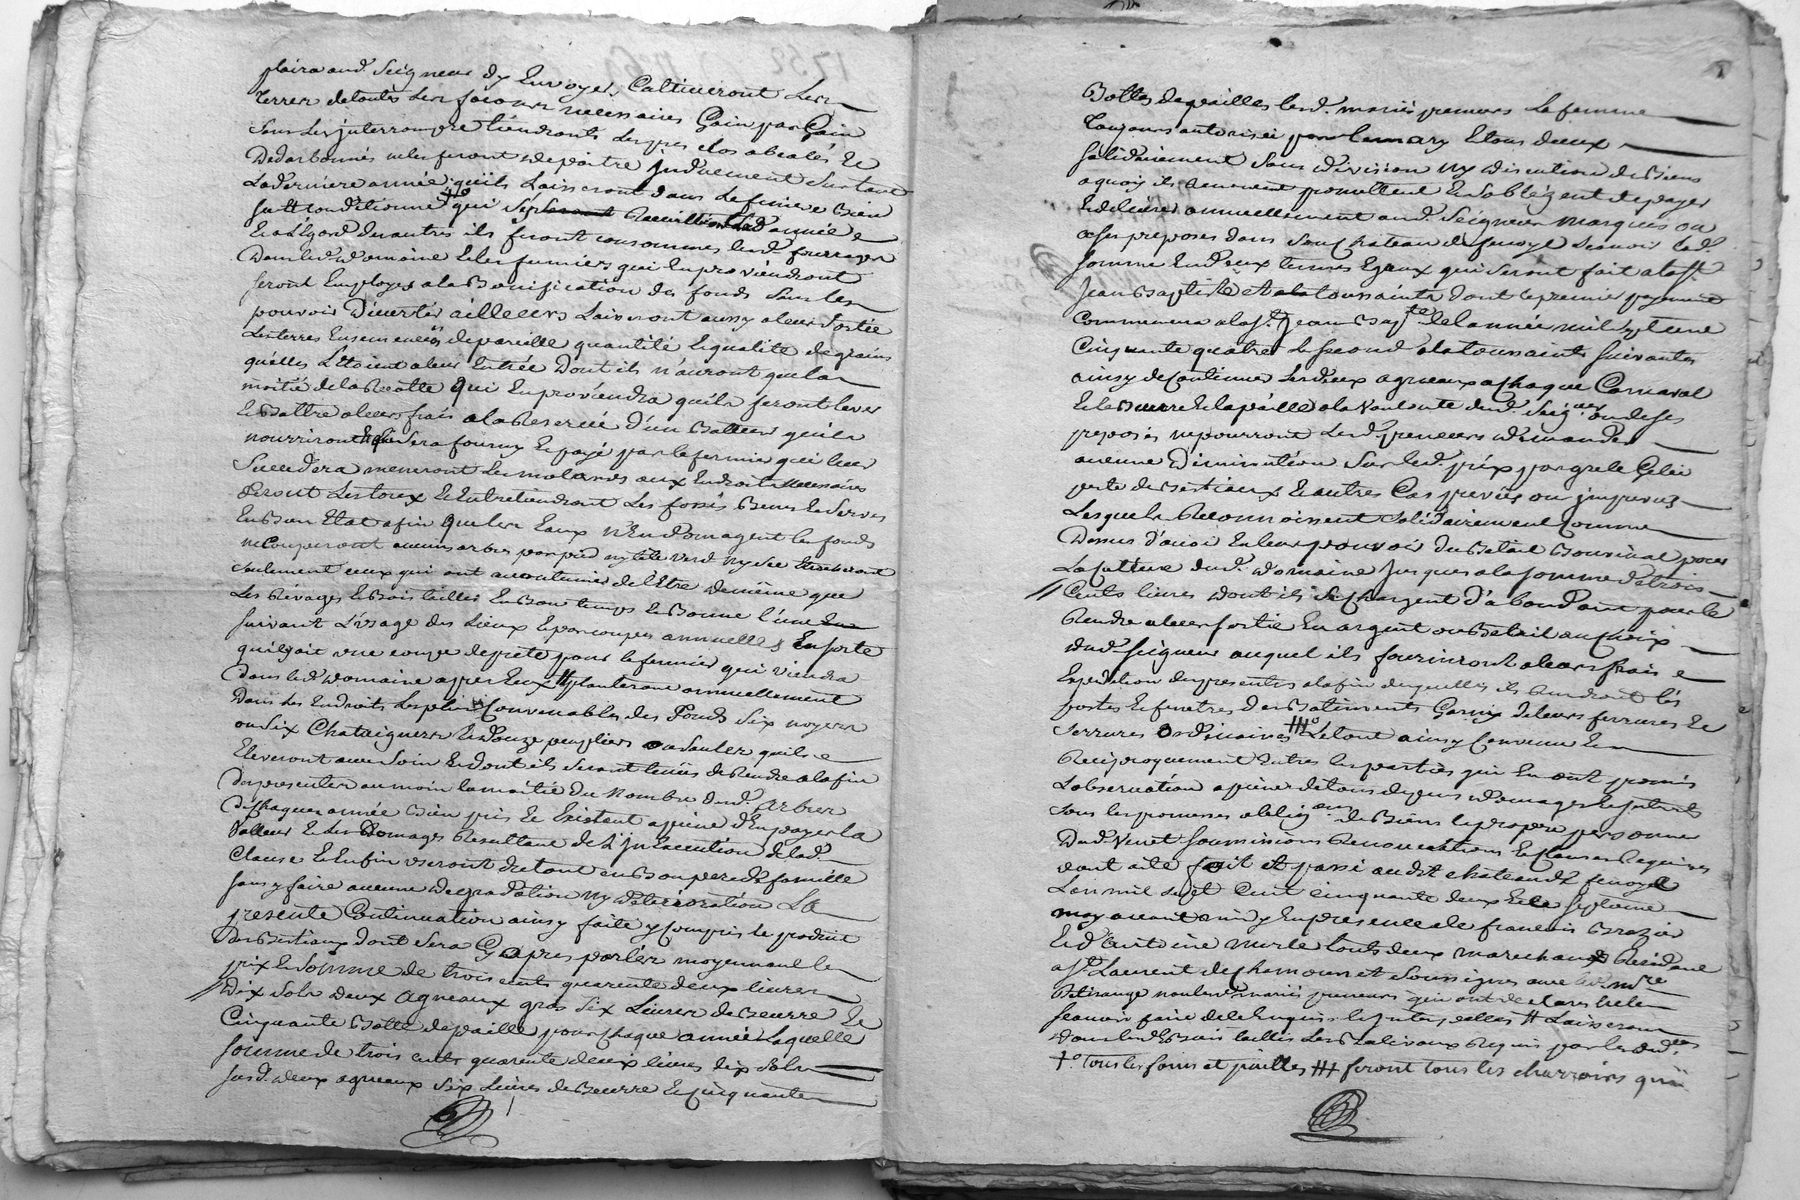 plaira aud. Seigneur dy Envoyer, Caltiveront Les
terres de toutes Les façons necessaires Gain par Gain
sans Les jnterrompre tiendronts Les pres clos abealés Et
neles feront depaitre jndûement surtout
La derniere année qu'ils Laisseront dans Le feniere Bien
conditionné qui Recuilliront Lad. année
Et a L'Egard des autres ils feront consommer Lesd. fourrages
Dans led. Domaine Et les fumiers qui En proviendront
seront Employes ala Bonification des fonds sans Les
pouvoir Divertir ailleurs Laisseront aussy a leur sortie
Les terres Ensemencées de pareille quantité Et qualité de grains
qu'elles Etoient a leur Entrée Dont ils n'auront que la
moitié de la Recolte qui En proviendra qu'ils feront lever
Et Battre a leurs frais a la Reserve d'un Batteur qu'ils
nourriront Et qui sera fourny Et payé par le fermier qui leur
Succedera meneront Les aux Endroits Necessaires
Et Entretiendront Les fossés
En Bon Etat afin que les Eaux n'Endomagent les fonds
ne Couperont aucuns arbres par pied ny tête verd ny sec
seulement ceux qui ont accoutumé de l'Etre de même que
Les Rivages Et Bois taillis En Bon temps Et Bonne Lune
suivant L'usage des Lieux Et par coupes annuelles En sorte
qu'il y ait une coupe de prete pour le fermier qui viendra
Dans led. Domaine apres Eux # planteront annuellement
Dans les Endroits Les plus Convenables des Fonds six noyers
ou six Chataigners Et Douze peupliers ou saules qu'ils
Eleveront avec soin Et dont ils seront tenüs de Rendre a la fin
Des presentes au moin la moitié du nombre desd. Arbres
De Chaque année Bien pris Et Existent a peine d'En payer La
Valleur Et Les Domages Resultant de L'jnExecution de lad.
Clause Et Enfin useront du tout en Bon pere de famille
sans y faire aucune Degradation Ny Deterioration La
presente Continuation ainsy faite y compris le produit
Des Bestiaux Dont sera Cy apres parlér moyennant le
prix Et Somme de trois cents quarente deux livres
Dix sols Deux agneaux gras six Livres de Beurre Et
Cinquante Bottes de paille pour Chaque année Laquelle
somme de trois cents quarente deux livres dix sols
susd. deux agneaux six Livres de Beurre Et cinquante
Bottes de pailles Lesd. mariés preneurs La femme
toujours autorisée par Le mary Et tous deux
solidairement sans division ny discution de Biens
a quoy ils Renoncent promettent Et s'obligent de payer
Et delivrer annuellement aud. Seigneur Marquis ou
a ses preposés dans son Chateau de fenoyl scavoir lad.
somme En deux termes Egaux qui seront fait a la St.
Jean Baptiste Et a la toussaints dont le premier payement
Commencera a la St. Jean Bapte. de L'année mil sept cent
Cinquante quatre Le second a la toussaints suivante
ainsy de Continuer Les deux agneaux a Chaque Carnaval
Et le Beurre Et la paille a la Vollonté dud. Seigneur ou de ses
preposés ne pourront Lesd. preneurs demander
aucune Diminution sur led. prix par grele Gelée
perte de Bestiaux Et autres Cas prevüs ou jmprevus
Lesquels Reconnoissent solidairement Comme
Dessus d'avoir En leur pouvoir du Betail pour
La Culture dud. Domaine jusques a la somme de trois
Cents livres dont ils se Chargent d'abondant pour le
Rendre a leur sortie En argent ou Betail au Choix
dud. Seigneur auquel ils fourniront a leurs frais
Expedition des presentes a la fin desquelles ils Rendront les
portes Et fenetres des Batiments Garnis de leurs ferrures Et
serrures ordinaires ### Le tout ainsy Convenu
Reciproquement Entre les parties qui En ont promis
L'observation a peine de tous depens domages Et jnterets
sous Les promesses obligons. de Biens
soummissions Renonciations Et Clauses Requises
dont acte fait et passé audit chateau de fenoyl
L'an mil sept Cent cinquante deux Et le septieme
may avant midy En presence de françois Brazier
Et d'Antoine tous deux marechaux Residant
a St. Laurent de Chamousset soussignes avec
non Lesd. mariés preneurs qui ont declaré ne le
scavoir faire de ce Enquis # Laisseront
dans led. Bois taillis Les Baliveaux Requis par les ordces
+° tous les foins et pailles ### feront tous les charrois qui